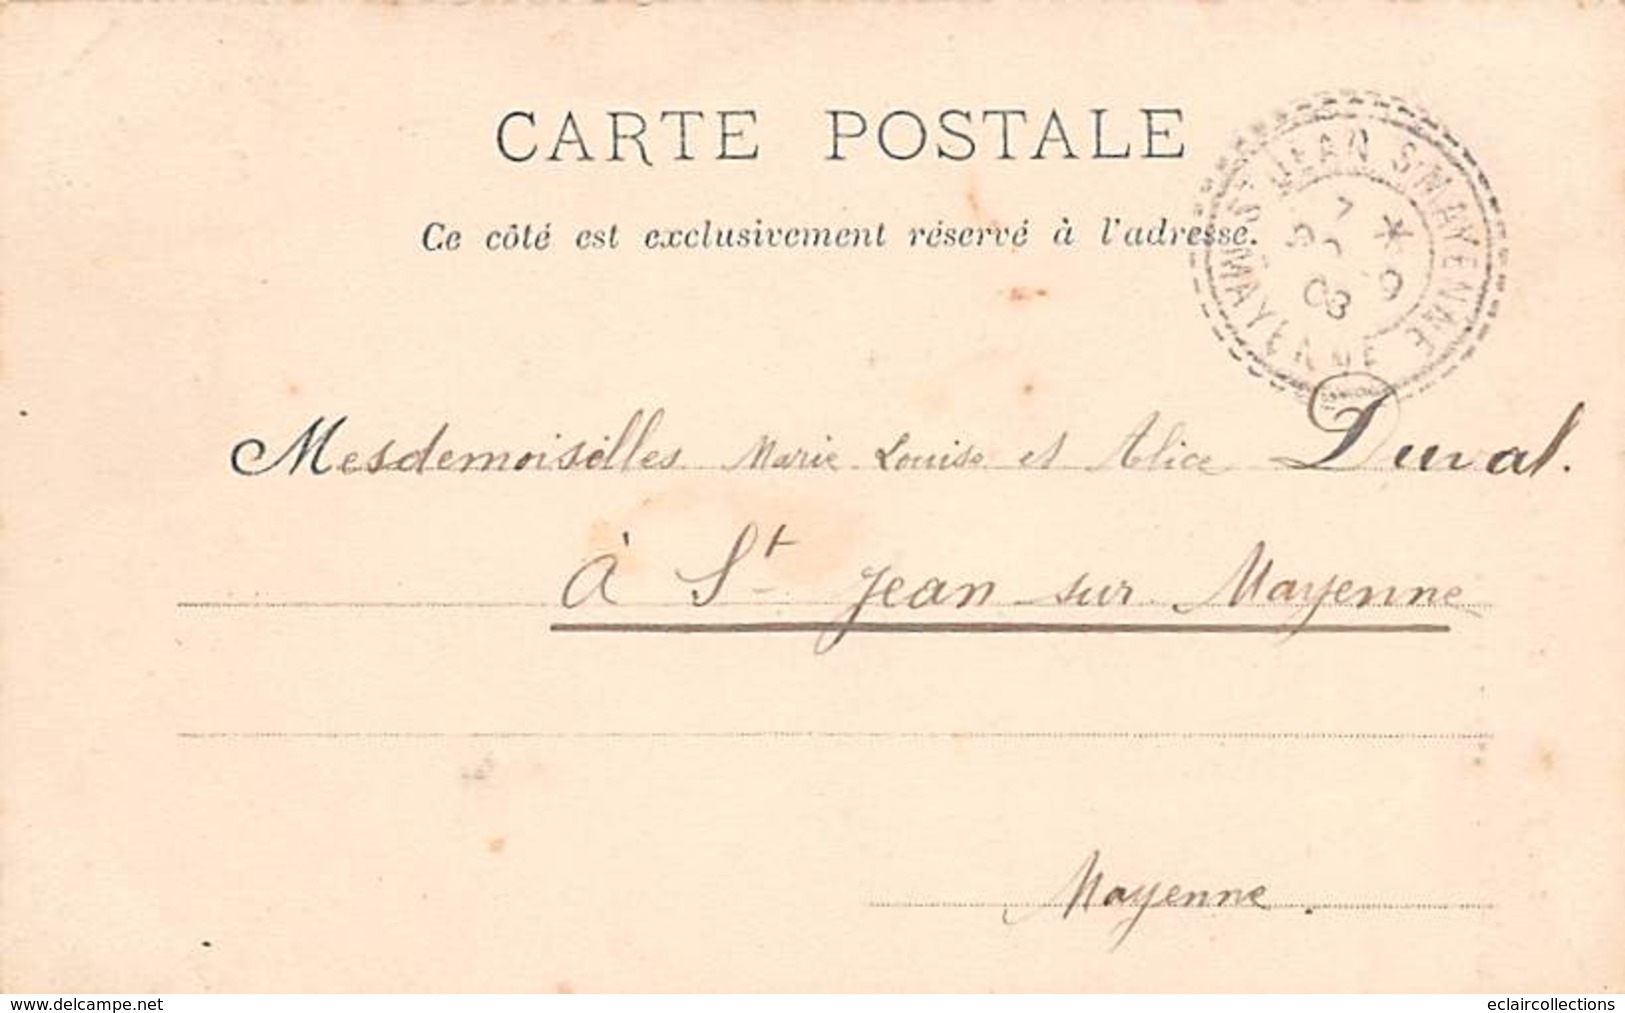 CARTE POSTALE
Ce côté est exclusivement réservé à l'adresse.
ST JEAN S/MAYENNE
MAYENNE
03
Mesdemoiselles Marie Louise et Alice Duval.
à St Jean sur Mayenne
Mayenne.
www.delcampe.net
eclaircollections